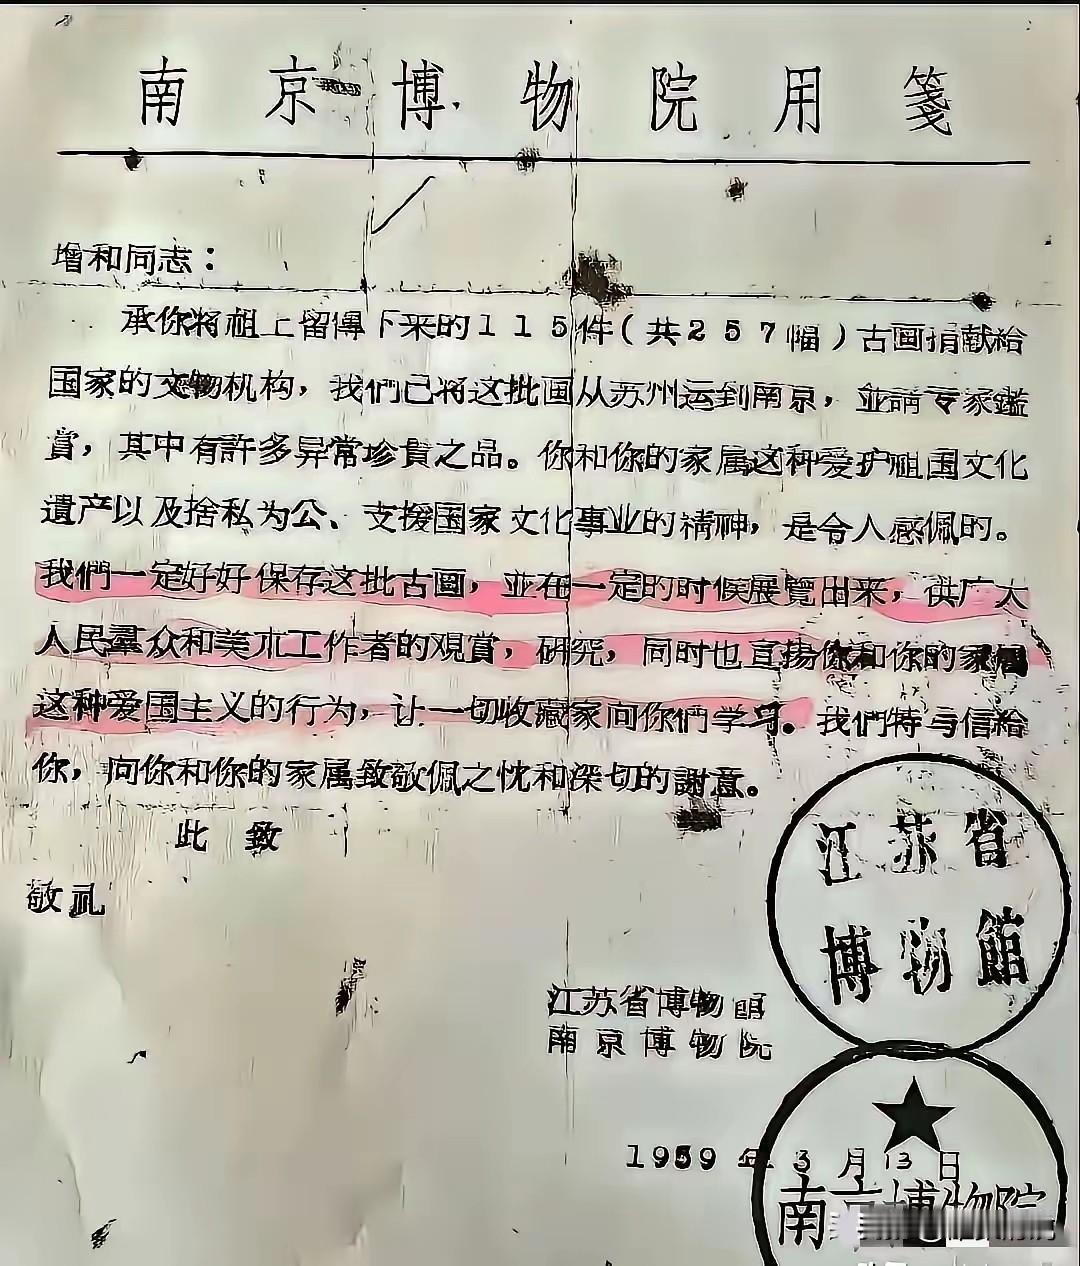 南京博物院用箋
增和同志：
承你将祖上留傳下来的115件（共257幅）古画捐献給
国家的文物机构，我們已将这批画从苏州运到南京，並請专家鑑
賞，其中有許多异常珍貴之品。你和你的家属这种爱护祖国文化
遺产以及捨私为公、支援国家文化事业的精神，是令人感佩的。
我們一定好好保存这批古画，並在一定的时候展覽出来，供广大
人民羣众和美朮工作者的观賞，研究，同时也宣扬你和你的家属
这种爱国主义的行为，让一切收藏家向你們学习。我們特与信給
你，向你和你的家属致敬佩之忱和深切的謝意。
此致
敬礼
江苏省
博物館
江苏省博物館
南京博物院
1959年3月13日
南京博物院